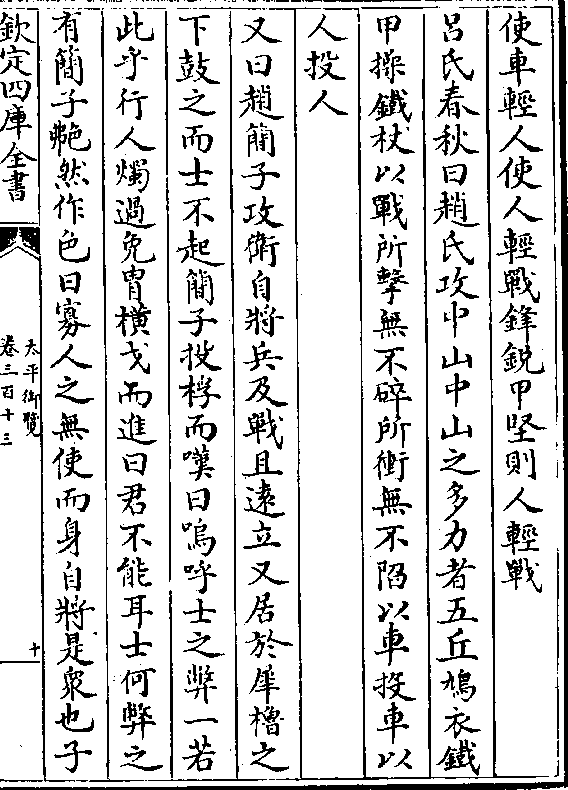 使車輕人使人輕戰鋒銳甲堅則人輕戰
呂氏春秋曰趙氏攻中山中山之多力者五丘鳩衣鐵
甲操鐵杖以戰所擊無不碎所衝無不陷以車投車以
人投人
又曰趙簡子攻衛自將兵及戰且遠立又居於犀櫓之
下鼓之而士不起簡子投桴而嘆曰嗚呼士之弊一若
此乎行人燭過免胄橫戈而進曰君不能耳士何弊之
有簡子艴然作色曰寡人之無使而身自將是衆也子
欽定四庫全書
太平御覽
卷三百十三
十